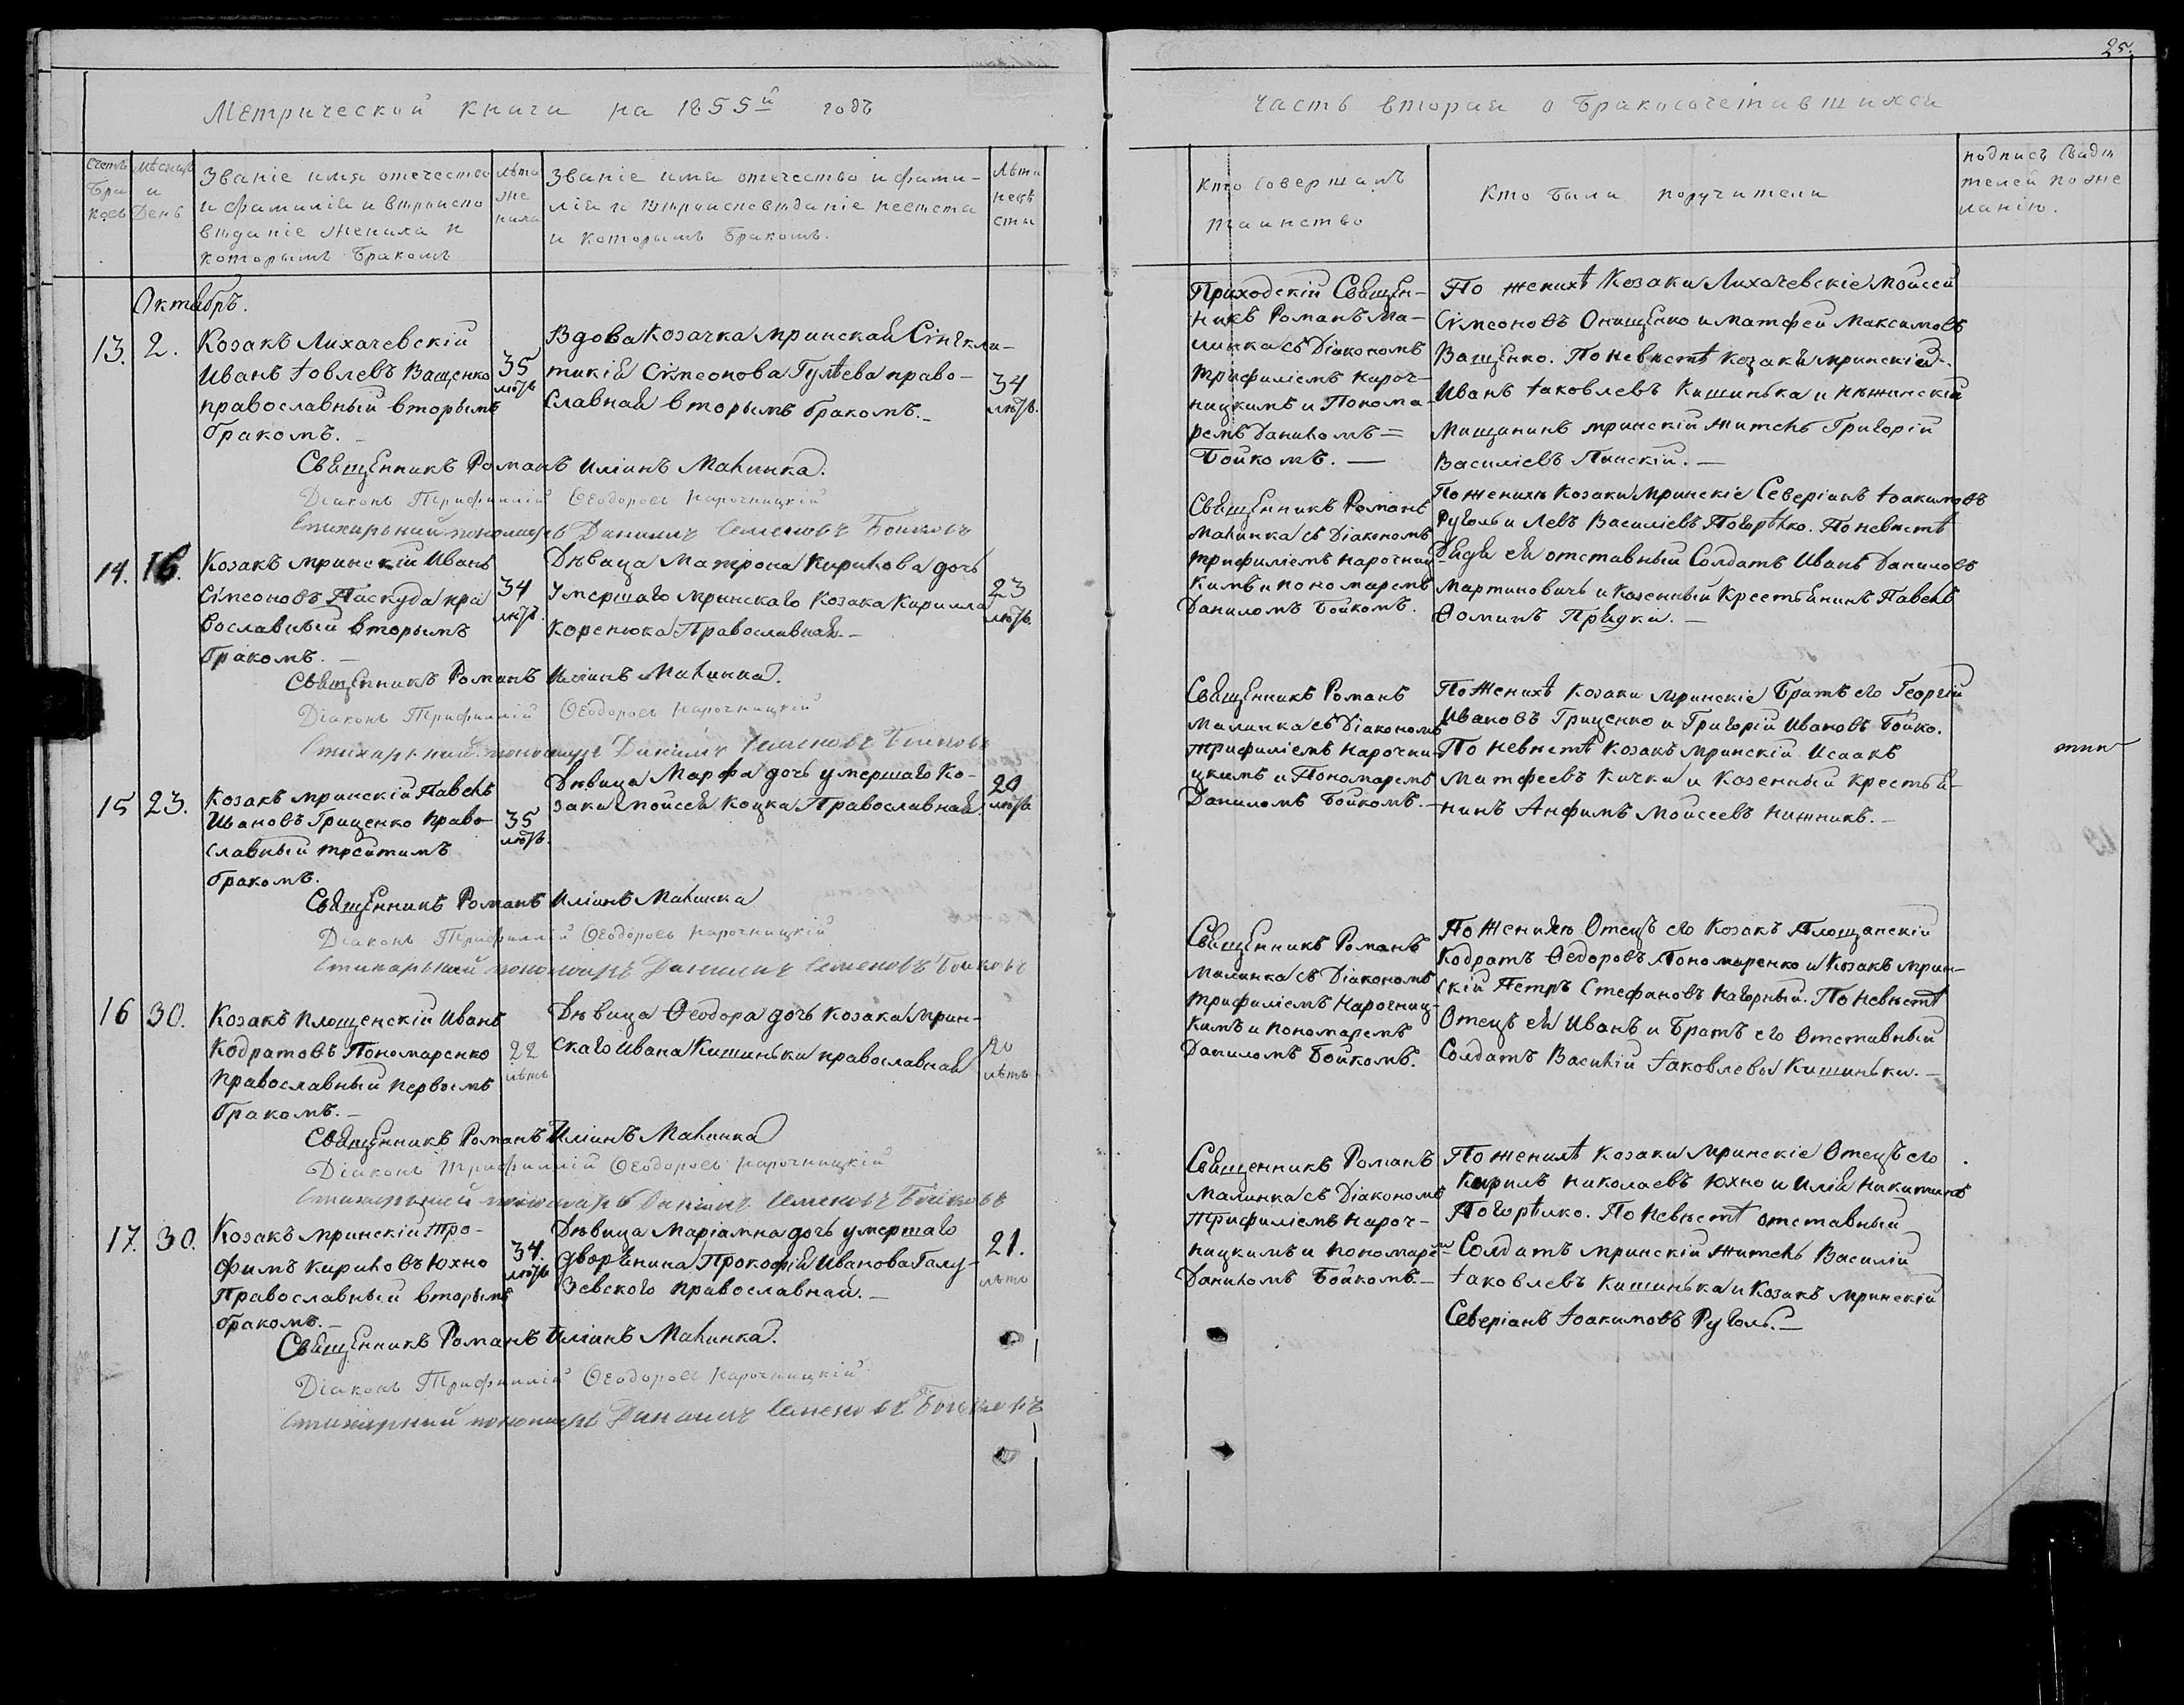 25.
Метрической книги на 1855й годъ
Часть вторая о бракосочетавшихся
Счетъ браковъ
Мѣсяцъ и День
Званіе имя отечество
и фамилія и вѣроиспо
вѣданіе жениха и
которымъ бракомъ
лѣта же ниха
Званіе имя отечество и фами-
лія и вѣроисповѣданіе невѣста
и которымъ бракомъ.
Лѣта невѣ сты
Кто совершалъ
таинство
Кто были поручители
подпись свидѣ
телей по же
ланію.
Октябрь.
13. 2.
Козакъ Лихачевскій
Иванъ Іовлевъ Ващенко
православный вторымъ
бракомъ.
35
лѣтъ
Вдова Козачка мринская Сінкли-
тикія Симеонова Гулѣева право-
славная вторымъ бракомъ.
34
лѣтъ.
Священникъ Романъ Иліинъ Малинка.
Діаконъ Трифиллій Ѳеодоровъ Нарочницкій
Стихарный пономарь Даниилъ Семеновъ Бойковъ
Приходскій Священ-
никъ Романъ Ма-
линка съ Діакономъ
Трифиліемъ Нароч-
ницкимъ и Понома-
ремъ Даниломъ =
Бойкомъ. —
По женихѣ Козаки Лихачевскіе Мойсей
Симеоновъ Онищенко и Матфей Максимовъ
Ващенко. По невѣстѣ козаки мринскіе
Иванъ Іаковлевъ Кишинька и нѣжинскій
Мищанинъ мринскій житель Григорій
Василіевъ Пинскій. —
14. 16.
Козакъ мринскій Иванъ
Симеоновъ Паскуда пра
вославный вторымъ
бракомъ. —
34
лѣтъ.
Дѣвица Матрона Кирилова дочь
Умершаго мринскаго козака Кирилла
Коренюка Православная. —
23
лѣтъ.
Священникъ Романъ Иліинъ Малинка.
Діаконъ Трифиллій Ѳеодоровъ Нарочницкій
Стихарный пономарь Даниилъ Семеновъ Бойковъ
Священникъ Романъ
Малинка съ Діакономъ
Трифиліемъ Нарочниц-
кимъ и пономаремъ
Даниломъ Бойкомъ.
По женихѣ козаки мринскіе Северіанъ Іоакимовъ
Руголь и Левъ Василіевъ Погорѣлко. По невѣстѣ
Дядя ея отставный Солдатъ Иванъ Даниловъ
Мартиновичъ и казенный Крестьянинъ Павелъ
Ѳоминъ Прядка. —
15 23.
Козакъ мринскій Павелъ
Ивановъ Гриценко право-
славный третимъ
бракомъ.
35
лѣтъ.
Дѣвица Марфа дочь умершаго ко-
зака Мойсея Коцка Православная.
20
лѣтъ
Священникъ Романъ Иліинъ Малинка
Діаконъ Трифиллій Ѳеодоровъ Нарочницкій
Стихарный пономарь Даниилъ Семеновъ Бойковъ
Священникъ Романъ
Малинка съ Діакономъ
Трифиліемъ Нарочни-
цкимъ и Пономаремъ
Даниломъ Бойкомъ. —
По Женихѣ козаки мринскіе Братъ его Георгій
Ивановъ Гриценко и Григорій Ивановъ Бойко.
По невѣстѣ козакъ мринскій Исаакъ
Матфеевъ Кичка и казенный крестья-
нинъ Анфимъ Моисеевъ Нижникъ. —
16 30.
Козакъ площенскій Иванъ
Кодратовъ Пономаренко
православный первымъ
бракомъ. —
22
лѣтъ
Дѣвица Ѳеодора дочь козака мрин-
скаго Ивана Кишиньки православная
20
лѣтъ
Священникъ Романъ Иліинъ Малинка
Діаконъ Трифиллій Ѳеодоровъ Нарочницкій
Стихарный пономарь Даниилъ Семеновъ Бойковъ
Священникъ Романъ
Малинка съ Діакономъ
Трифиліемъ Нарочниц-
кимъ и пономаремъ
Даниломъ Бойкомъ.
По Жениху Отецъ его Козакъ Площанскій
Кодратъ Ѳедоровъ Пономаренко и козакъ мрин-
скій Петръ Стефановъ Нагорный. По невѣстѣ
Отецъ ея Иванъ и Братъ его отставный
Солдатъ Василій Іаковлевы Кишиньки. —
17. 30.
Козакъ мринскій Тро-
фимъ Кириловъ Юхно
Православный вторымъ
бракомъ. —
34.
лѣтъ
Дѣвица Маріамна дочь умершаго
дворянина Прокофія Иванова Галу-
зевского православная. —
21.
лѣтъ
Священникъ Романъ Иліинъ Малинка.
Діаконъ Трифиллій Ѳеодоровъ Нарочницкій
Стихарный пономарь Даниилъ Семеновъ Бойковъ
Священникъ Романъ
Малинка съ Діакономъ
Трифиліемъ Нароч-
ницкимъ и пономаремъ
Даниломъ Бойкомъ. —
По женихѣ козаки мринскіе Отецъ его
Кирилъ Николаевъ Юхно и Илія Никитинъ
Погорѣлко. По невѣстѣ отставный
Солдатъ мринскій житель Василій
Іаковлевъ Кишинька и Козакъ мринскій
Северіанъ Іоакимовъ Руголь. —